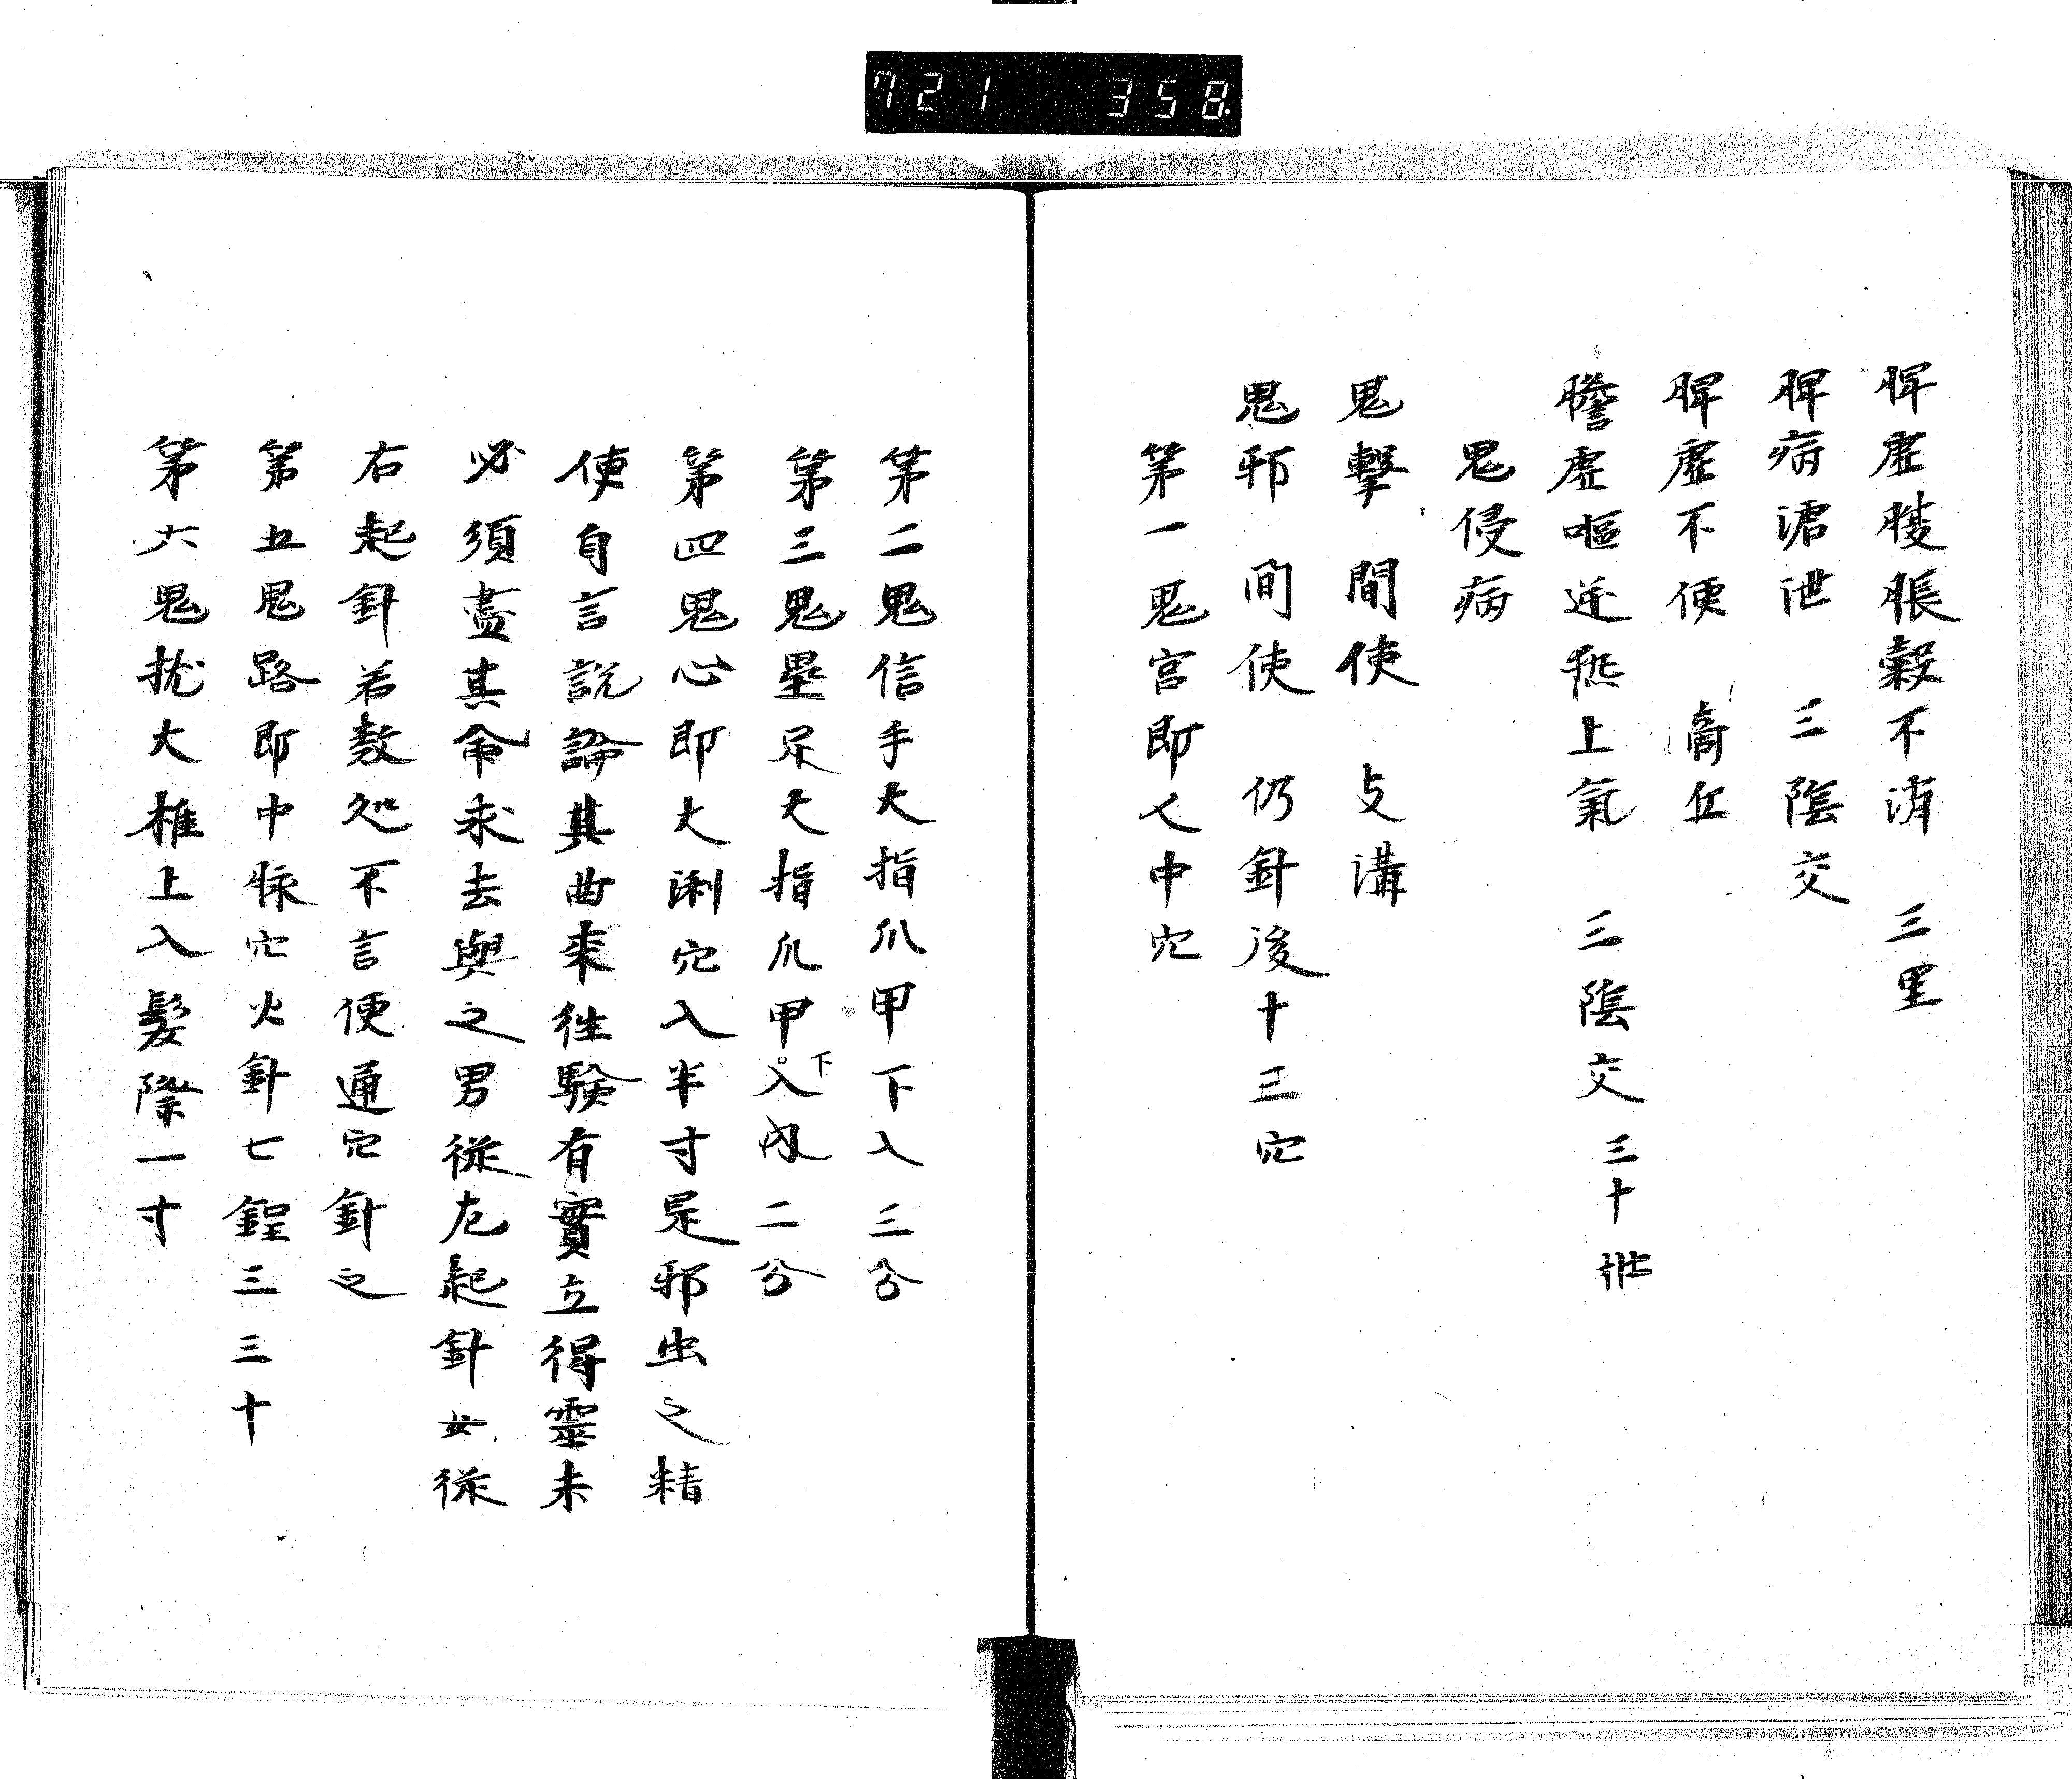 721 358
脾虚腹脹穀不消 三里
脾病溏泄 三陰交
脾虚不便 商丘
膽虚嘔逆熱上氣 三陰交三十壯
鬼侵病
鬼擊 間使 支溝
鬼邪 间使 仍針後十三穴
第一鬼宮即人中穴
第二鬼信手大指爪甲下入三分
第三鬼壘足大指爪甲下入肉二分
第四鬼心即大渕穴入半寸是邪虫之精
使自言説論其由来往驗有實立得靈未
必須盡其命求去與之男從左起針女從
右起針若数処不言便通穴針之
第五鬼路即中脉穴火針七鍟三三十
第六鬼扰大椎上入髮際一寸